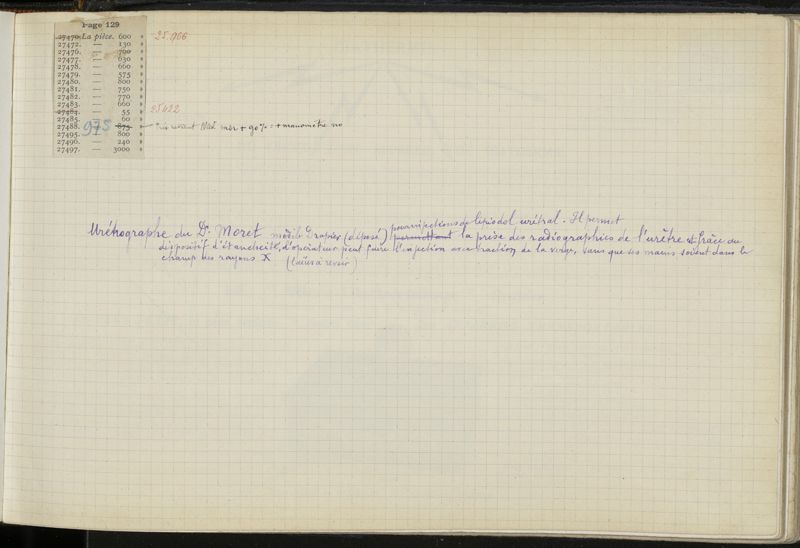 Page 129
27470. La pièce. 600 »
27472. — 130 »
27476. — 700 »
27477. — 630 »
27478. — 660 »
27479. — 575 »
27480. — 800 »
27481. — 750 »
27482. — 770 »
27483. — 660 »
27484. — 55 »
27485. — 60 »
27488. 975 875 »
27495. — 800 »
27496. — 240 »
27497. — 3000 »
25.966
25622
+ 90% = + manomètre no
Uréthographe du Dr Moret modèle Drapier (déposé) pour injections de lipiodol urétral. Il permet
permettant la prise des radiographies de l'urètre et grâce au
dispositif d'étanchéité, l'opérateur peut faire l'injection avec traction de la verge, sans que ses mains soient dans le
champ des rayons X (       à revoir)